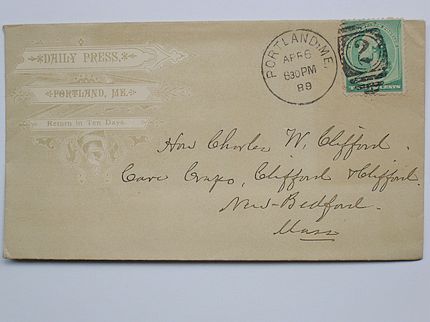 DAILY PRESS,
PORTLAND, ME.
Return in Ten Days.
PORTLAND, ME.
APR 6
630 PM
89
2
CENTS
Hon Charles W. Clifford.
Care Crapo, Clifford & Clifford.
New-Bedford.
Mass